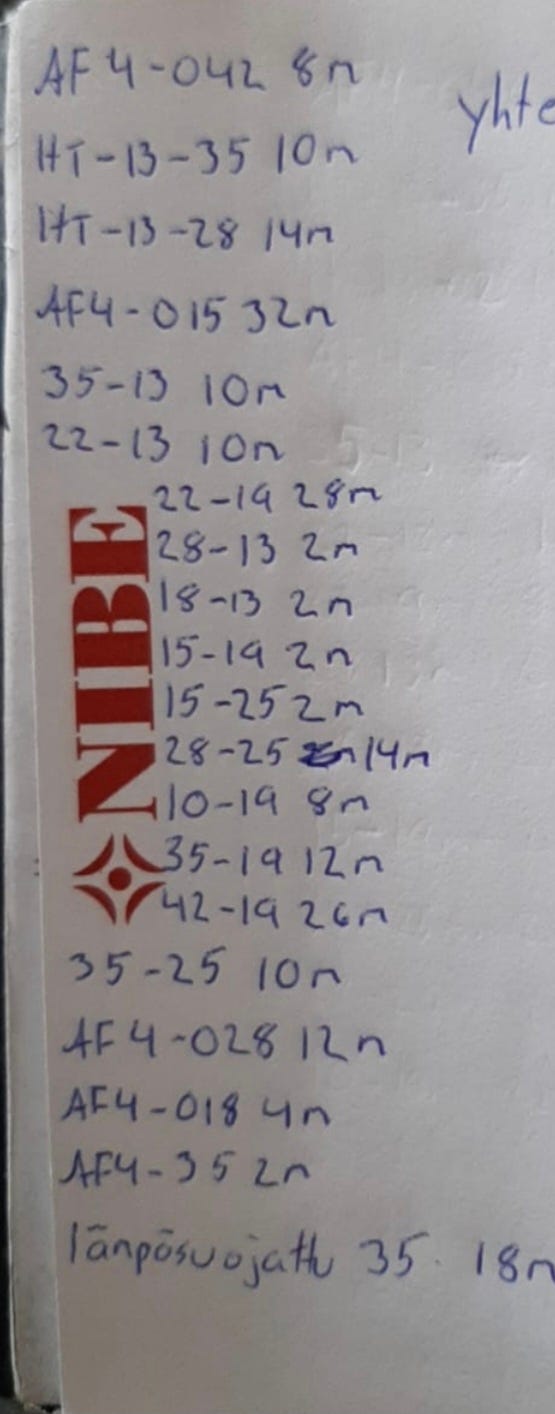 AF4-042 8m
yhte
HT-13-35 10m
HT-13-28 14m
AF4-015 32m
35-13 10m
22-13 10m
NIBE
22-19 28m
28-13 2m
18-13 2m
15-19 2m
15-25 2m
28-25 14m
10-19 8m
35-19 12m
42-19 26m
35-25 10m
AF4-028 12m
AF4-018 4m
AF4-35 2m
lämpösuojattu 35. 18m